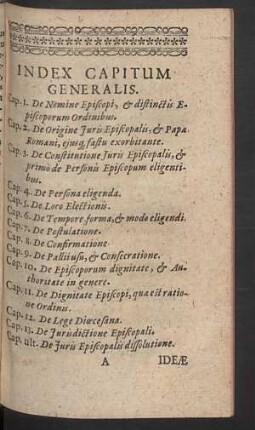 INDEX CAPITUM
GENERALIS.
Cap. 1. De Nomine Episcopi, & distinctis E-
piscoporum Ordinibus.
Cap. 2. De Origine Juris Episcopalis, & Papæ
Romani, ejusq; fastu exorbitante.
Cap. 3. De Constitutione Juris Episcopalis, &
primò de Personis Episcopum eligenti-
bus.
Cap. 4. De Persona eligenda.
Cap. 5. De Loco Electionis.
Cap. 6. De Tempore forma, & modo eligendi.
Cap. 7. De Postulatione.
Cap. 8. De Confirmatione
Cap. 9. De Pallii usu, & Consecratione.
Cap. 10. De Episcoporum dignitate, & Au-
thoritate in genere.
Cap. 11. De Dignitate Episcopi, quæ est ratio-
ne Ordinis.
Cap. 12. De Lege Diœcesana.
Cap. 13. De Jurisdictione Episcopali.
Cap. ult. De Juris Episcopalis dissolutione.
A IDEÆ